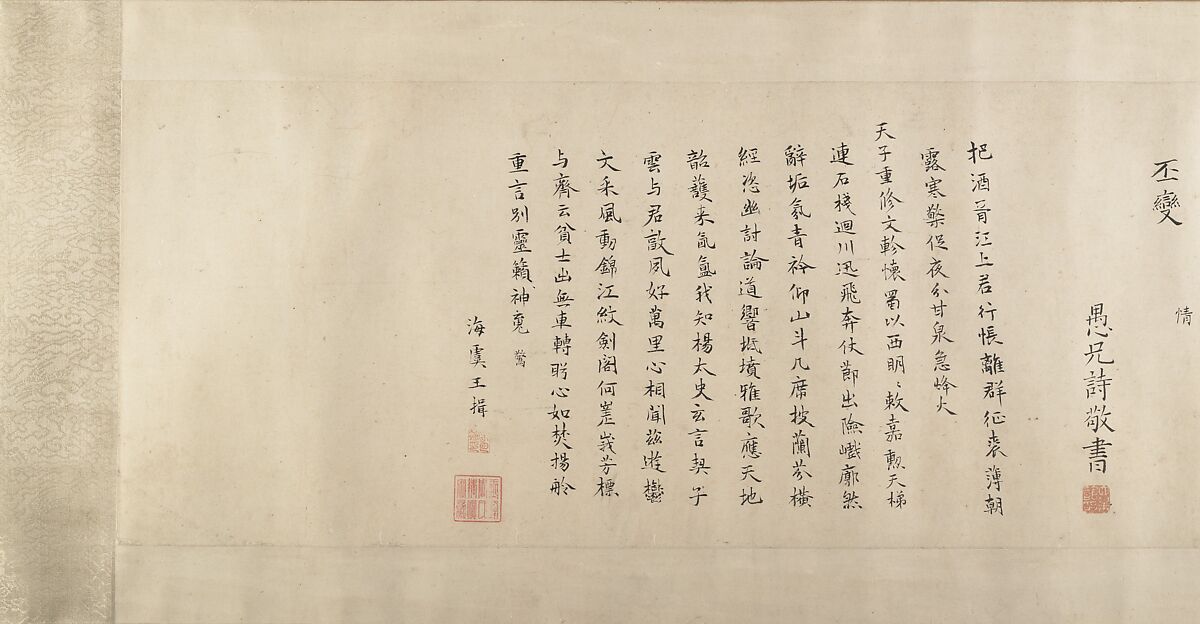 情
丕變
愚兄詩敬書
把酒胥江上君行悵離群征裘薄朝
露寒藜促夜分甘泉急烽火
天子重修文軫懷蜀以西明明敕嘉勲天梯
連石棧迴川迅飛奔仗節出險巇廓然
辭垢氛青衿仰山斗几席披蘭芬橫
經恣幽討論道響坻墳雅歌應天地
韶頀来氤氳我知楊太史玄言契子
雲与君敦夙好萬里心相聞茲遊鬱
文采風動錦江紋劍閣何崔嵬芳標
与齊云貧士出無車轉盻心如焚揚舲
重言別靈籟神寃
驚
海虞王揖